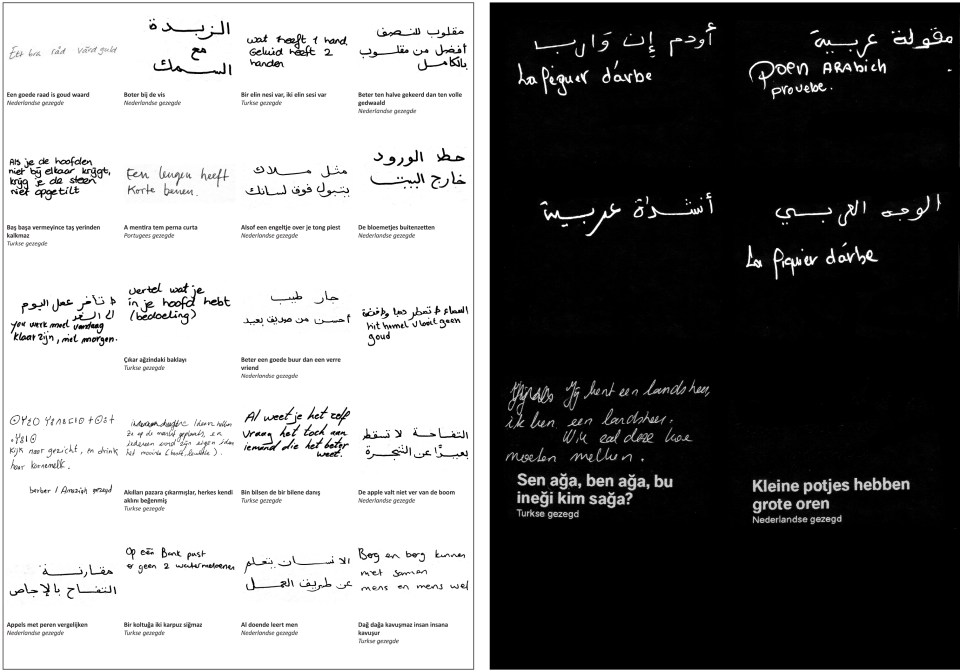 Ett bra råd värd guld
Een goede raad is goud waard
Nederlandse gezegde
الزبدة
مع
السمك
Boter bij de vis
Nederlandse gezegde
wat heeft 1 hand
Geluid heeft 2
handen
Bir elin nesi var, iki elin sesi var
Turkse gezegde
مقلوب للنصف
أفضل من مقلوب
بالكامل
Beter ten halve gekeerd dan ten volle
gedwaald
Nederlandse gezegde
Als je de hoofden
niet bij elkaar krijgt,
krijg je de steen
niet opgetilt
Baş başa vermeyince taş yerinden
kalkmaz
Turkse gezegde
Een leugen heeft
Korte benen.
A mentira tem perna curta
Portugees gezegde
مثل ملاك
يتبول فوق لسانك
Alsof een engeltje over je tong piest
Nederlandse gezegde
حط الورود
خارج البيت
De bloemetjes buitenzetten
Nederlandse gezegde
تأخر عمل اليوم
you werk moet vandaag
klaar zijn, niet morgen.
vertel wat je
in je hoofd hebt
(bedoeling)
Çıkar ağzındaki baklayı
Turkse gezegde
جار طيب
أحسن من صديق بعيد
Beter een goede buur dan een verre
vriend
Nederlandse gezegde
السماء لا تمطر
goud
Kijk naar gezicht, en drink
haar karnemelk.
berber / Amazigh gezegd
Akılları pazara çıkarmışlar, herkes kendi
aklını beğenmiş
Turkse gezegde
Al weet je het zelf
vraag het toch aan
iemand die het beter
weet.
Bin bilsen de bir bilene danış
Turkse gezegde
التفاحة لا تسقط
بعيدًا عن الشجرة
De apple valt niet ver van de boom
Nederlandse gezegde
مقارنة
التفاح بالإجاص
Appels met peren vergelijken
Nederlandse gezegde
Op een Bank past
er geen 2 watermeloenen
Bir koltuğa iki karpuz siğmaz
Turkse gezegde
الانسان يتعلم
عن طريق العمل
Al doende leert men
Nederlandse gezegde
Berg en berg kunnen
niet samen
mens en mens wel
Dağ dağa kavuşmaz insan insana
kavuşur
Turkse gezegde
أودم إن وارب
La figuer d'arbe
مقولة عربية
Poen ARABich
provebe.
أنشدة عربية
الوجه العربي
La fiquier d'arbe
Jij bent een landsheer,
ik ben een landsheer.
Wie zal deze koe
moeten melken.
Sen ağa, ben ağa, bu
ineği kim sağa?
Turkse gezegd
Kleine potjes hebben
grote oren
Nederlandse gezegd